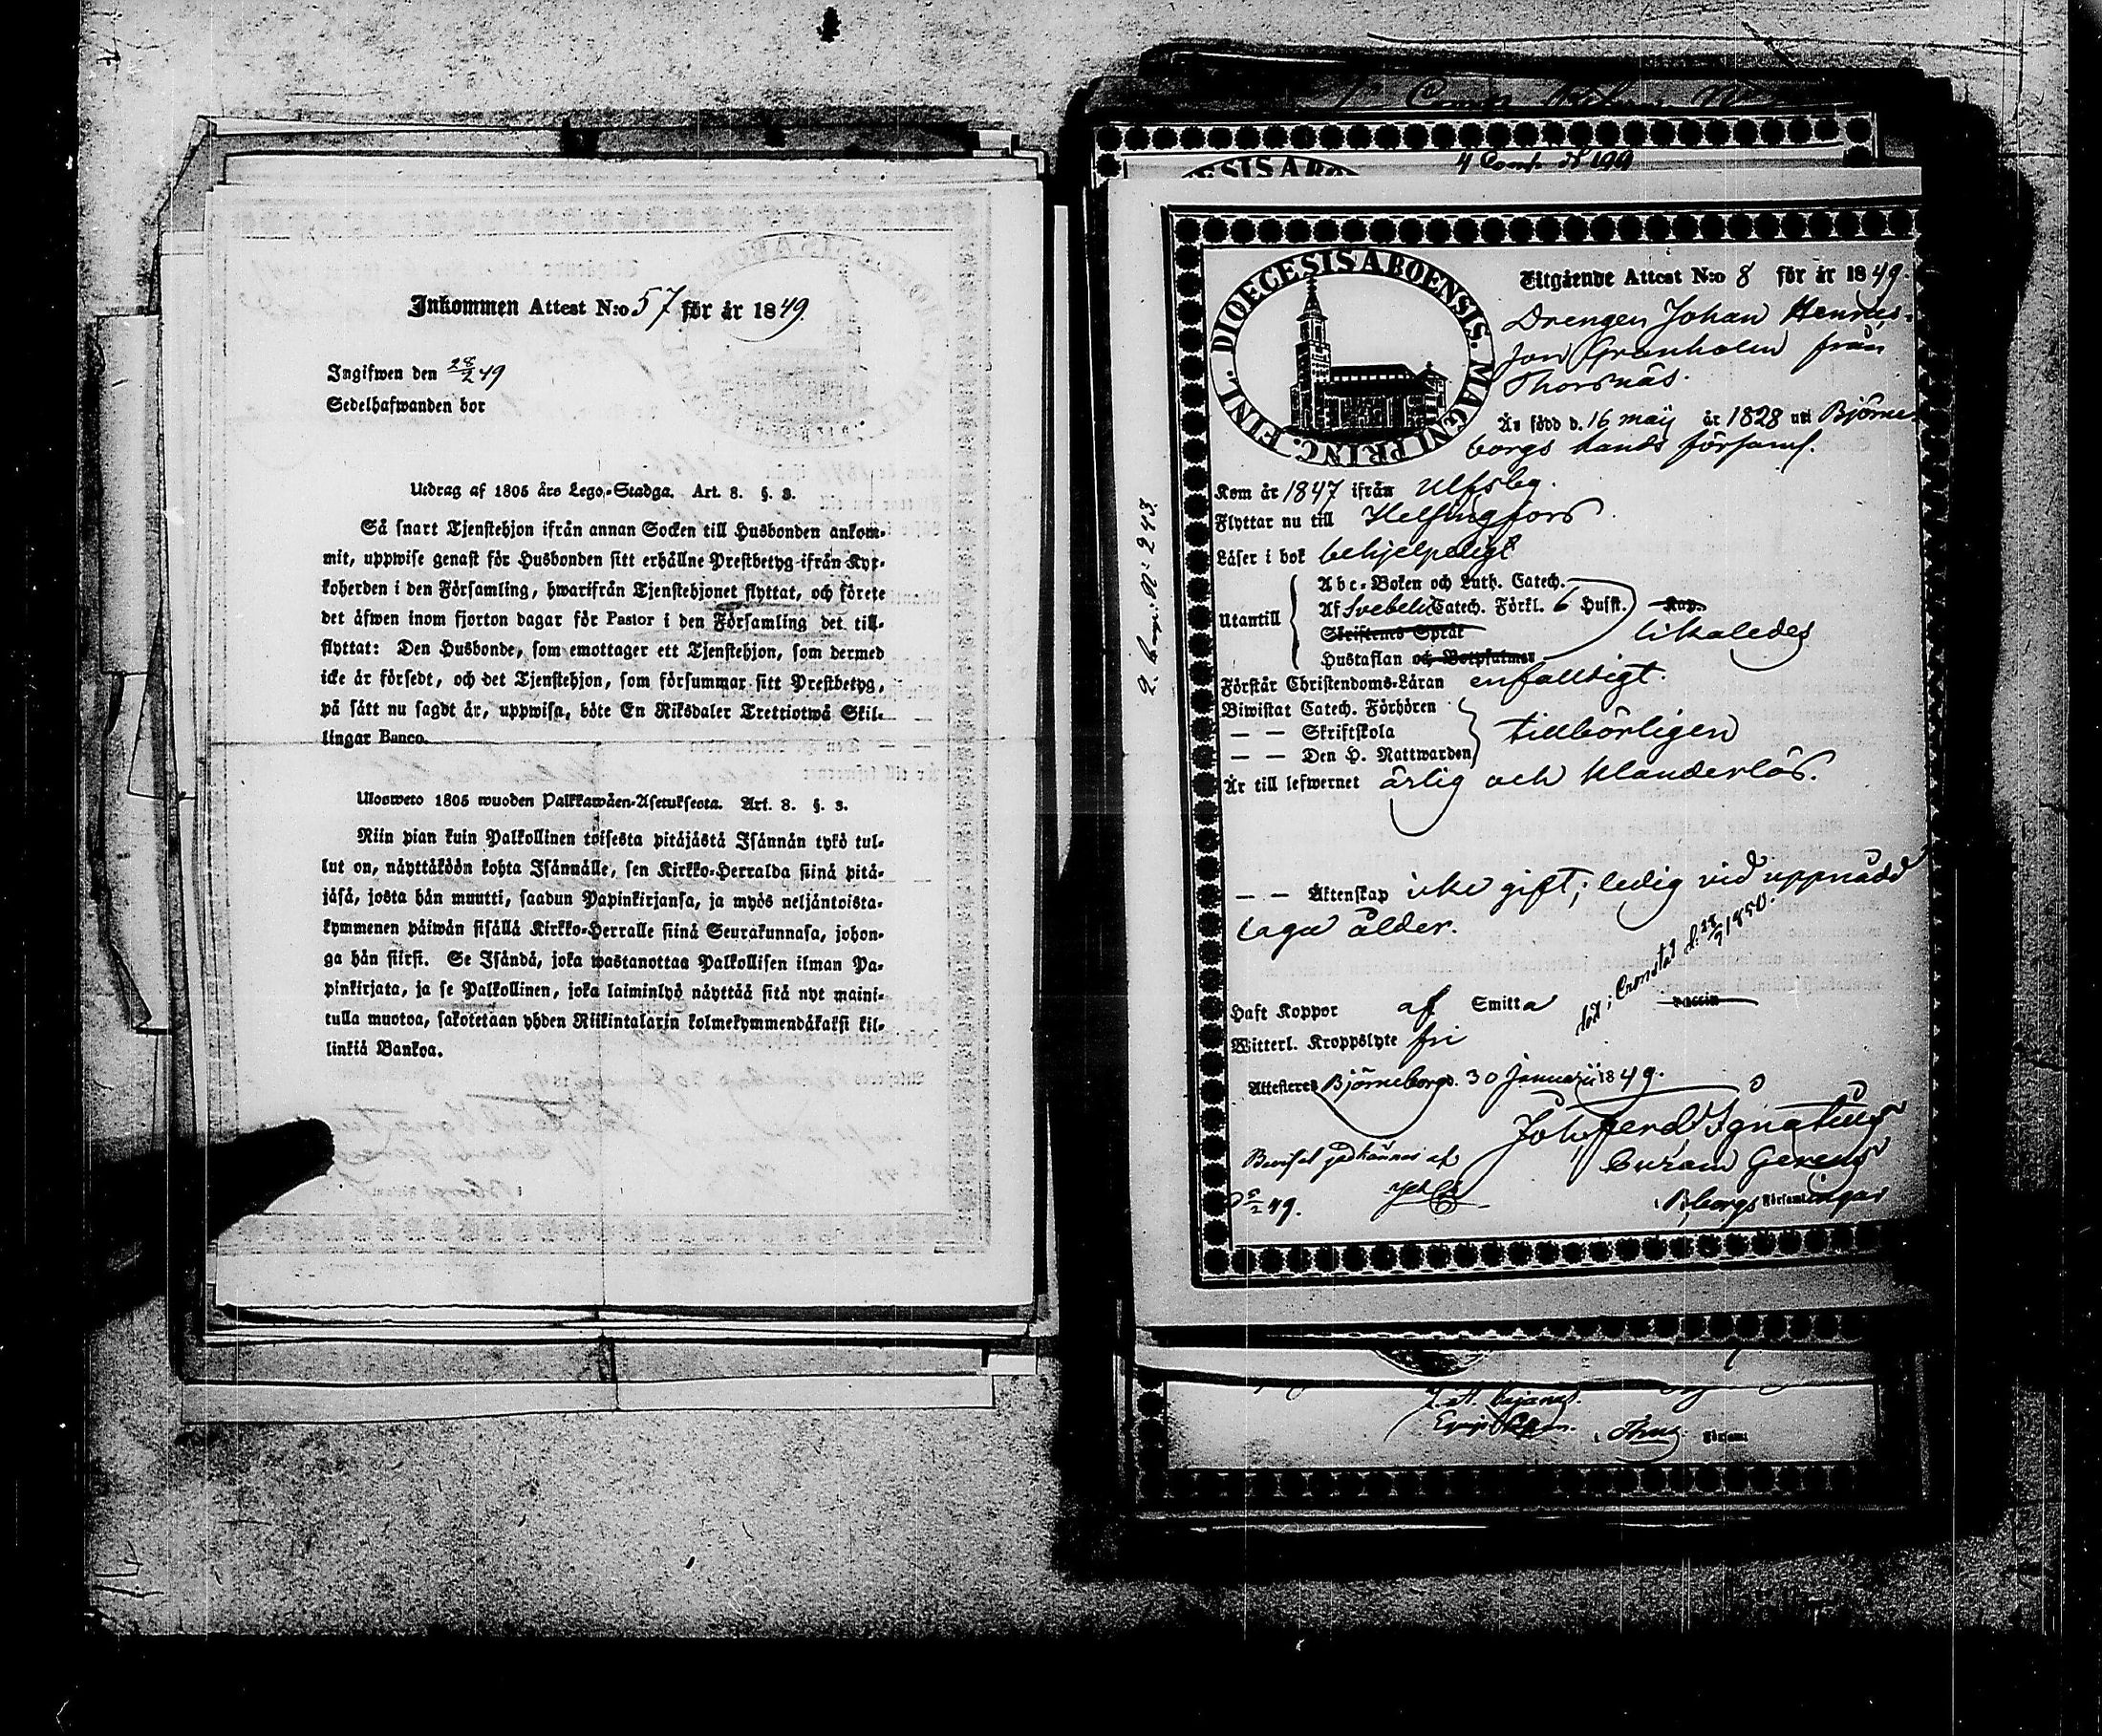 Inkommen Attest N:o 57 för år 1849.
Ingifwen den 28/2 49
Sedelhafwanden bor
Utdrag af 1805 års Lego-Stadga. Art. 8. §. 3.
Så snart Tjenstehjon ifrån annan Socken till Husbonden ankom-
mit, uppwise genast för Husbonden sitt erhållne Prestbetyg ifrån Kyr-
koherden i den Församling, hwarifrån Tjenstehjonet flyttat, och förete
det äfwen inom fjorton dagar för Pastor i den Församling det till-
flyttat: Den Husbonde, som emottager ett Tjenstehjon, som dermed
icke är försedt, och det Tjenstehjon, som försummar sitt Prestbetyg,
på sätt nu sagdt är, uppwisa, böte En Riksdaler Trettiotwå Skil-
lingar Banco.
Ulosweto 1805 wuoden Palkkawäen-Asetuksesta. Art. 8. §. 3.
Niin pian kuin Palkollinen toisesta pitäjästä Isännän tykö tul-
lut on, näyttäköön kohta Isännälle, sen Kirkko-Herralda siinä pitä-
jäsä, josta hän muutti, saadun Papinkirjansa, ja myös neljäntoista-
kymmenen päiwän sisällä Kirkko-Herralle siinä Seurakunnasa, johon-
ga hän siirsi. Se Isändä, joka wastanottaa Palkollisen ilman Pa-
pinkirjata, ja se Palkollinen, joka laiminlyö näyttää sitä nyt maini-
tulla muotoa, sakotetaan yhden Riikintalarin kolmekymmendäkaksi kil-
linkiä Bankoa.
4 Comp. № 199
DIOECESIS ABOENSIS. MAGNI PRINC. FINL.
Utgående Attest N:o 8 för år 1849.
Drengen Johan Henriks-
son Granholm från
Thorsnäs.
Är född d. 16 maij år 1828 uti Björne-
borgs Lands församl.
Kom år 1847 ifrån Ulfsby.
Flyttar nu till Helsingfors
Läser i bok behjelpeligt
Utantill
Abc-Boken och Luth. Catech.
Af Svebelii Catech. Förkl. 6 Hufst. Kap.
Skriftens Språk likaledes
Hustaflan och Botpsalmer
Förstår Christendoms-Läran enfaldigt.
Biwistat Catech. Förhören
— — Skriftskola tillbörligen
— — Den H. Nattwarden
Är till lefwernet ärlig och klanderlös.
— — Äktenskap icke gift; ledig vid uppnådd
laga ålder.
död i Cronstad d. 1850.
Haft Koppor af Smitta vaccin
Witterl. Kroppslyte fri
Attesteres Björneborg d. 30 Januarii 1849.
Joh. Ferd. Ignatius
Curam Gerens
i B.borgs Församlingar
Beviset godkännes af
d 5/2 49.
2. Comp. N: 243.
Församl.